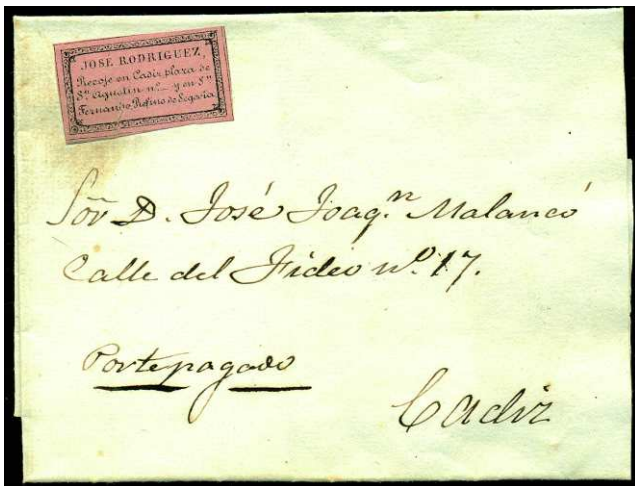 JOSE RODRIGUEZ,
Recoje en Cadiz plaza de
Sn. Agustin nº y en Sn
Fernando, Refino de Segovia
Sōr D. José Joaqn. Malancó
Calle del Fideo nº. 17.
Portepagado
Cadiz